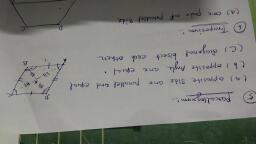 ⑤ Parallelogram :-
(a) opposite side are parallel and equal
(b) opposite Angle are equal.
(c) diagonal bisect each other.
⑥ Trapezium :-
(a) one pair of parallel side